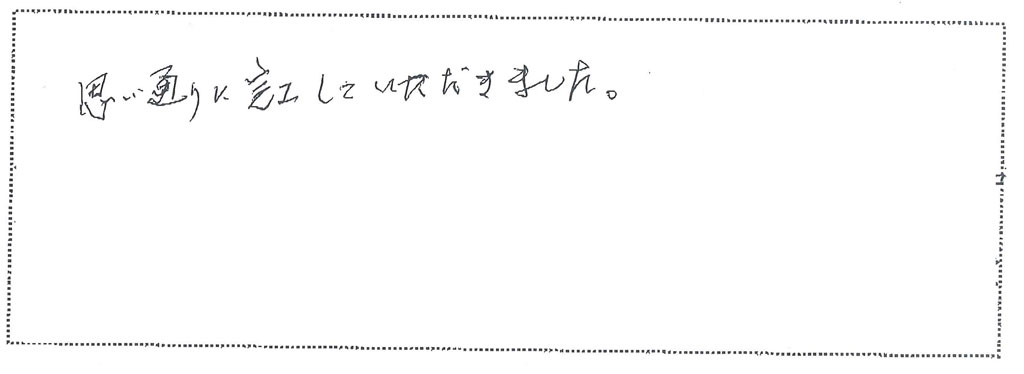 思い通りに完工していただきました。